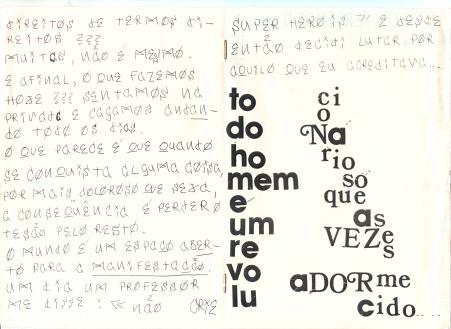 DIREITOS DE TERMOS DI-
REITOS ???
MUITOS, NÃO É MESMO.
E AFINAL, O QUE FAZEMOS
HOJE ??? SENTAMOS NA
PRIVADA E CAGAMOS ANDAN-
DO TODO OS DIAS.
O QUE PARECE É QUE QUANDO
SE CONQUISTA ALGUMA COISA,
POR MAIS DOLOROSO QUE SEJA,
A CONSEQUÊNCIA É PERDER O
TESÃO PELO RESTO.
O MUNDO É UM ESPAÇO ABER-
TO PARA A MANIFESTAÇÃO.
UM DIA UM PROFESSOR
ME DISSE: "NÃO CRIE
SUPER HERÓIS" E DESDE
ENTÃO DECIDI LUTAR POR
AQUILO QUE EU ACREDITAVA...
to
do
ho
mem
é
um
re
vo
lu
ci
o
Ná
rio
só
que
as
VEZes
aDORme
cido...